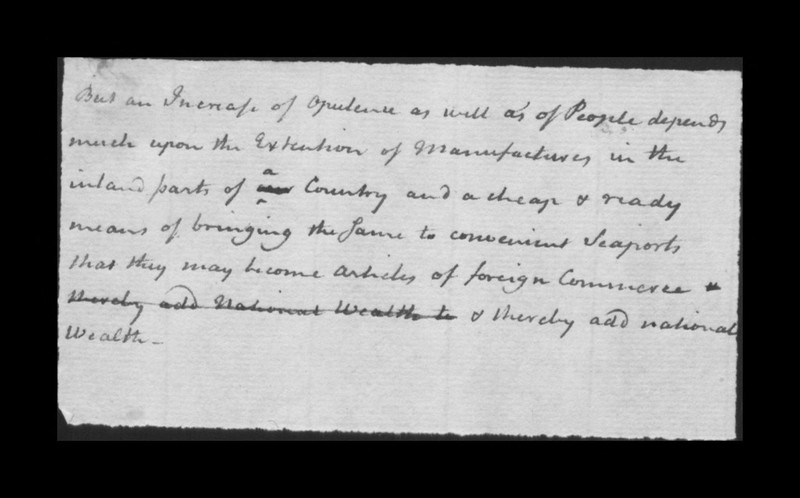 But an Increase of Opulence as well as of People depends
much upon the Extention of Manufactures in the
inland parts of a Country and a cheap & ready
means of bringing the Same to convenient Seaports
that they may become articles of foreign Commerce &
thereby add National Wealth to & thereby add national
Wealth -